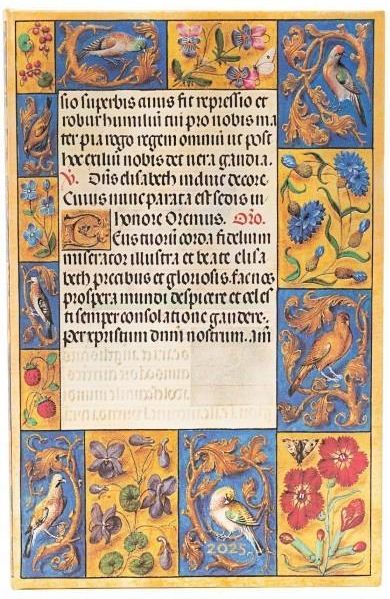 sio superbis cuius fit repressio et
robur humiliū tu pro nobis ma
ter pia rogo regem omniū ut post
hoc exiliū nobis det uera gaudia.
V. Dn̄s elisabeth induit decore
Cuius nunc parata est sedis in
honore Oremus. Oro.
Deus tuorū corda fidelium
miserator illustra et beate elisa
beth precibus et gloriosis. fac nos
prospera mundi despicere et celes
ti semper consolatione gaudere.
Per xpristum dnm̄ nostrum. am̄
2025